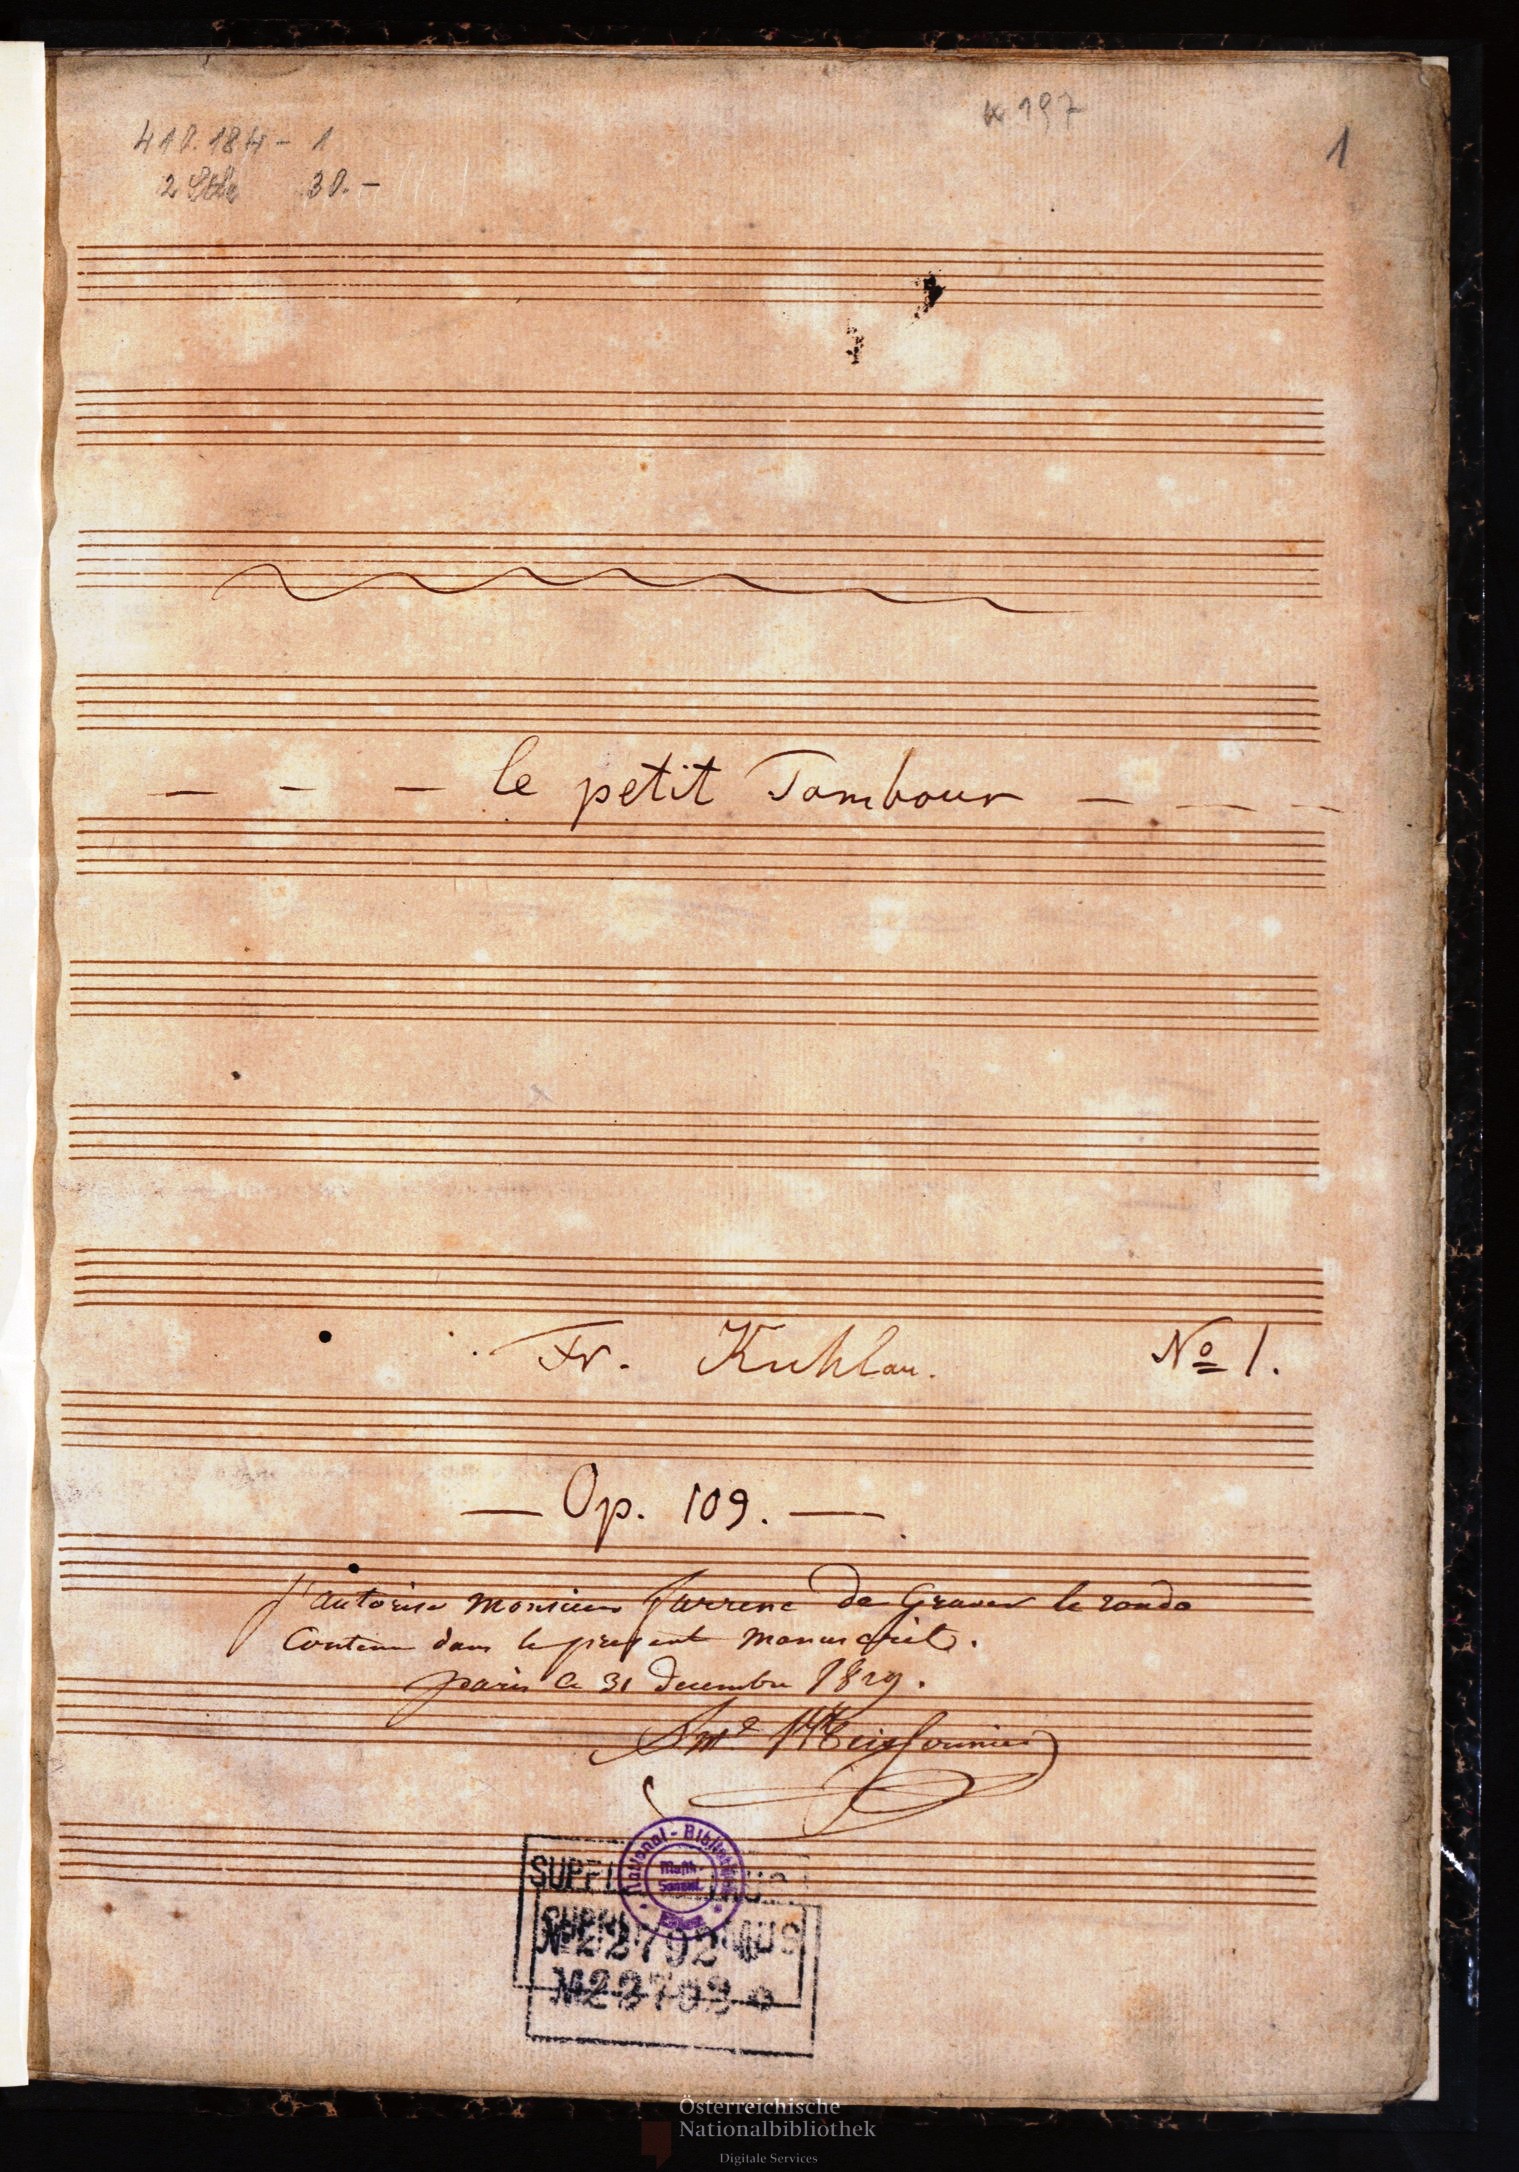 410.184 - 1
2 30.-
197
1
le petit Tambour
Fr. Kuhlau. No 1.
Op. 109.
j'autorise Monsieur farrenc de Graver le rondo
Contenu dans le present manuscrit.
paris le 31 decembre 1829.
National-Bibliothek
SUPPL MUS
No 22792
M22793
Österreichische
Nationalbibliothek
Digitale Services